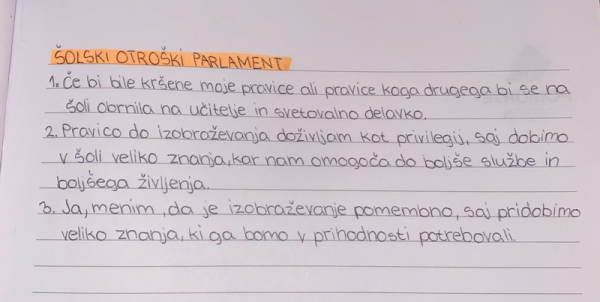 ŠOLSKI OTROŠKI PARLAMENT
1. Če bi bile kršene moje pravice ali pravice koga drugega bi se na
šoli obrnila na učitelje in svetovalno delavko.
2. Pravico do izobraževanja doživljam kot privilegij, saj dobimo
v šoli veliko znanja, kar nam omogoča do boljše službe in
boljšega življenja.
3. Ja, menim, da je izobraževanje pomembno, saj pridobimo
veliko znanja, ki ga bomo v prihodnosti potrebovali.